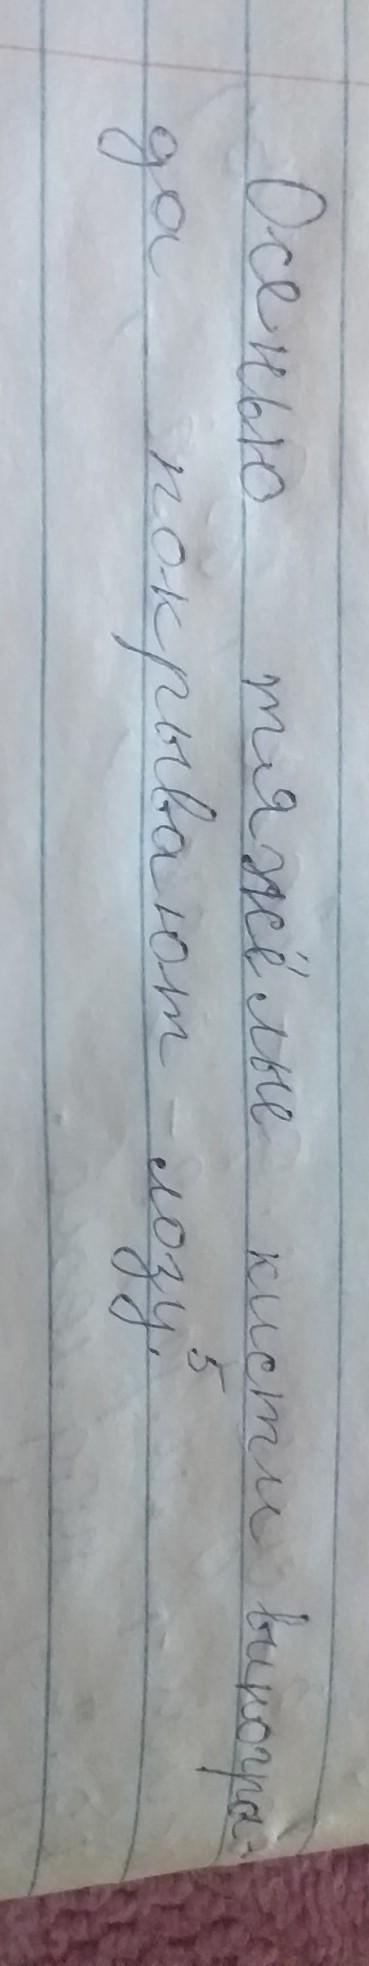 Осенью тяжёлые кисти виногра-
да покрывают - лозу.⁵